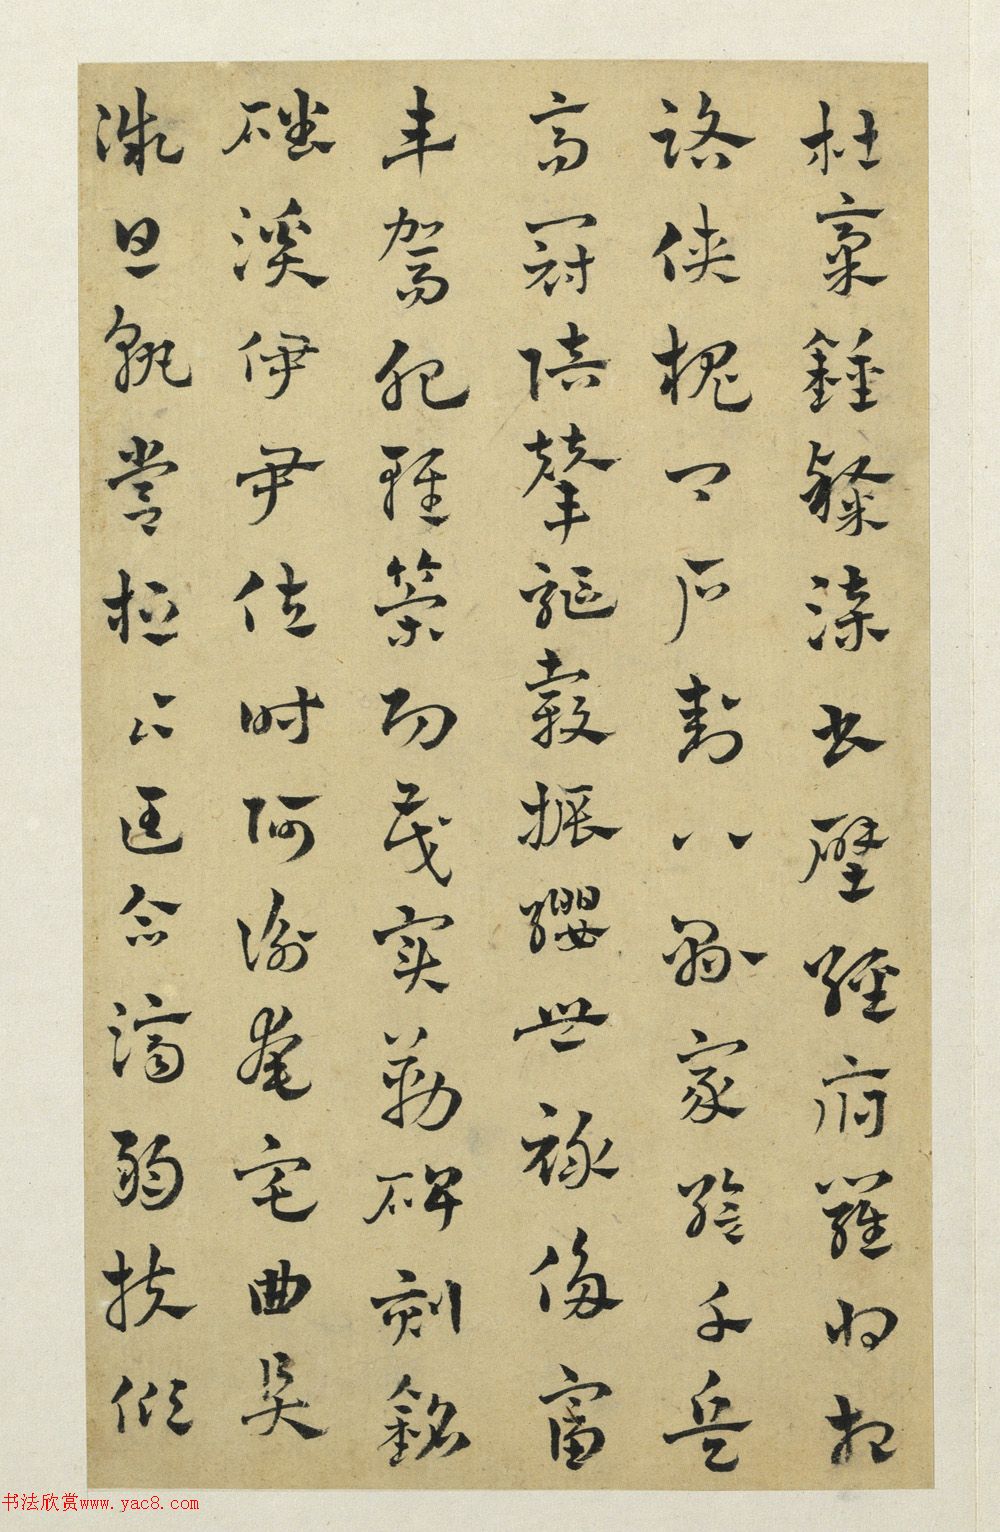 杜稾鍾隸漆書壁經府羅將相
路俠槐卿戶封八縣家給千兵
高冠陪輦驅轂振纓世祿侈富
車駕肥輕策功茂實勒碑刻銘
磻溪伊尹佐時阿衡奄宅曲阜
微旦孰營桓公匡合濟弱扶傾
书法欣赏www.yac8.com